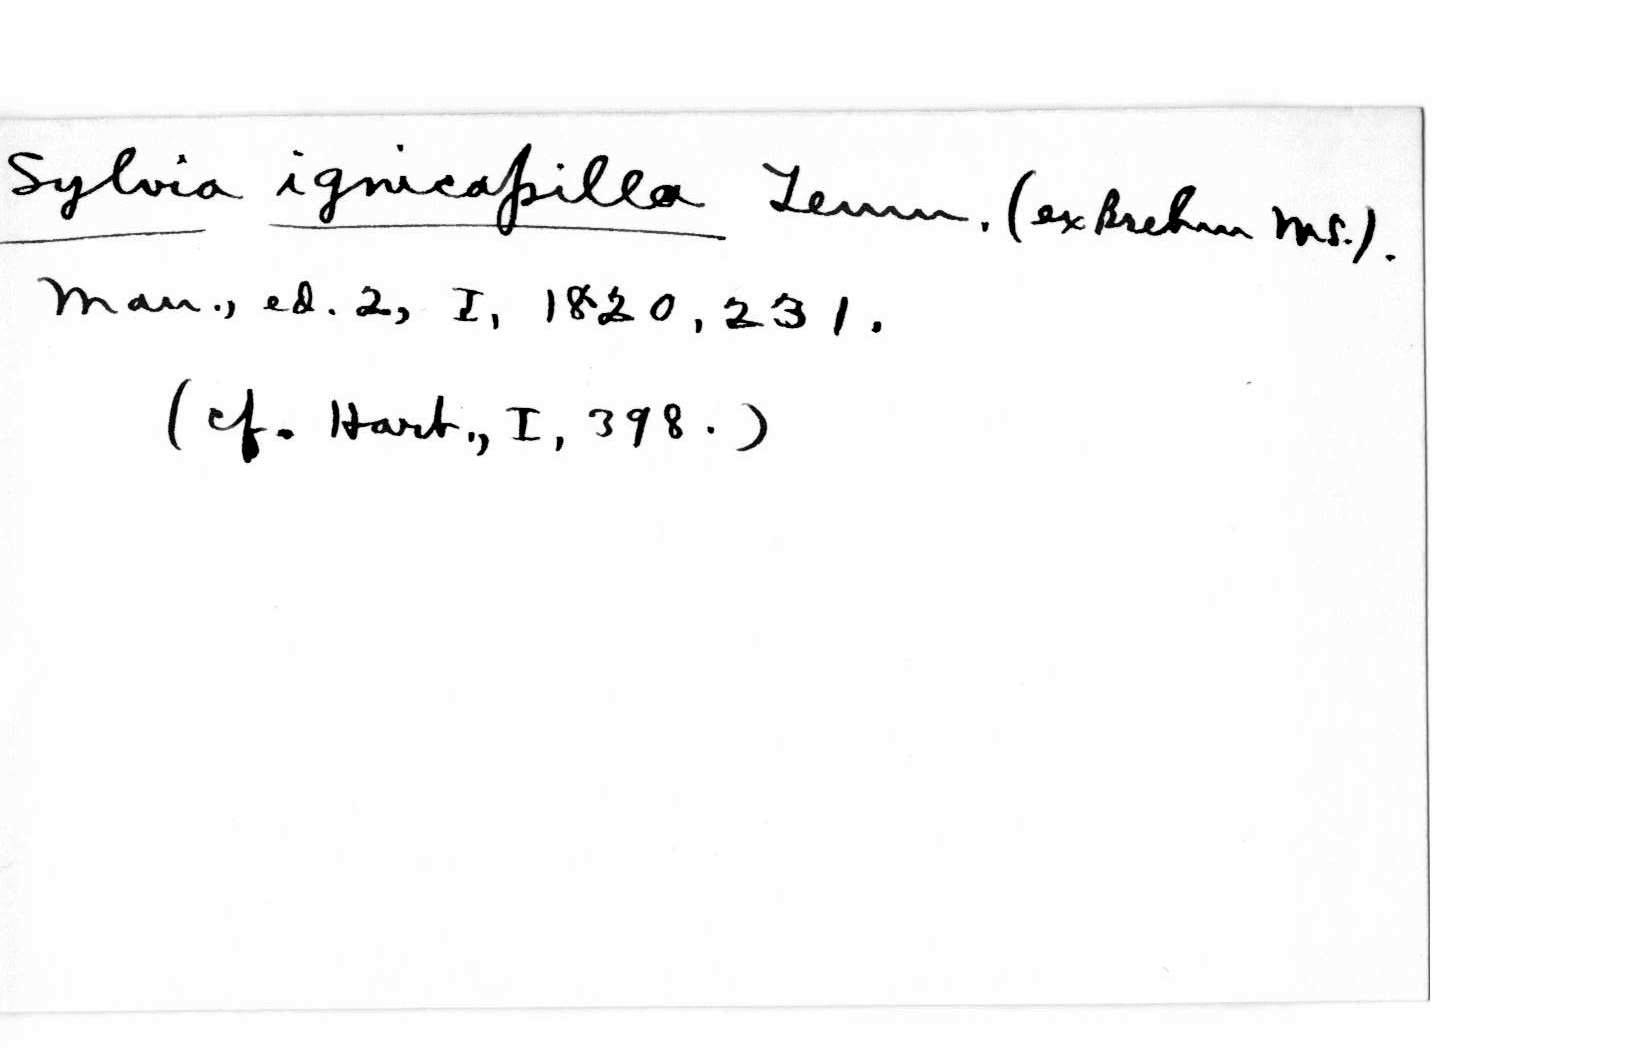 Sylvia ignicapilla Temm. (ex Brehm MS.).
Man., ed. 2, I, 1820, 231.
(cf. Hart., I, 398.)